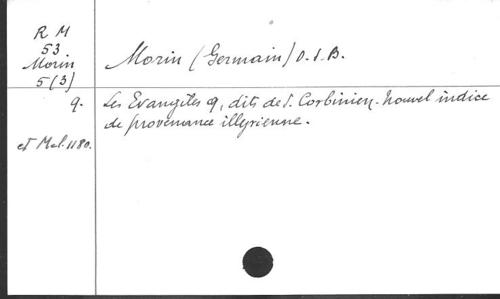 R M
53
Morin
5(3)
Morin (Germain) O.S.B.
9. Les Evangiles q, dits de S. Corbinien. Nouvel indice
de provenance illyrienne.
et Mel. 1180.